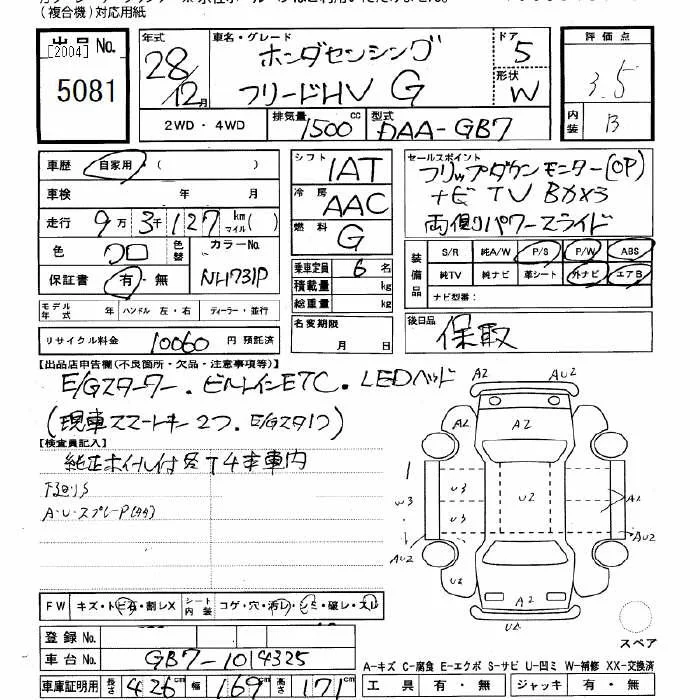 (複合機)対応用紙
出品No.
[2004]
5081
年式
28/12月
車名・グレード
ホンダセンシング
フリードHV G
ドア
5
形状
W
評価点
3.5
内装
B
2WD・4WD
排気量
1500cc
型式
DAA-GB7
車歴 自家用・( )
車検 年 月
走行 9万3千127km マイル( )
色 クロ 色替
カラーNo.
NH731P
保証書 有・無
シフト IAT
冷房 AAC
燃料 G
乗車定員 6名
積載量 kg
総重量 kg
名変期限
月 日
セールスポイント
フリップダウンモニター(OP)
ナビ TV Bカメラ
両側パワースライド
装備品
S/R 純A/W P/S P/W ABS
純TV 純ナビ 革シート 外ナビ エアB
ナビ型番:
モデル年式 年 ハンドル 左・右 ディーラー・並行
リサイクル料金 10060円預託済
後日品
保取
【出品店申告欄(不良箇所・欠品・注意事項等)】
E/Gスターター.ビルトインETC.LEDヘッド
(現車スマートキー2つ.E/Gスタ1つ)
【検査員記入】
純正ホイル付冬T4本車内
下廻りS
A・U・スプレーP
A2 AU2
A2 A2
U3 U2 A2
W3 U3
AU2 AU2
U2
A2
UA
スペア
FW キズ・トビ石・割レX シート内装 コゲ・穴・汚レ・シミ・破レ・スレ
登録No.
車台No. GB7-1014325
車庫証明用 長さ 426cm 幅 169cm 高さ 171cm
A-キズ C-腐食 E-エクボ S-サビ U-凹ミ W-補修 XX-交換済
工具 有・無 ジャッキ 有・無